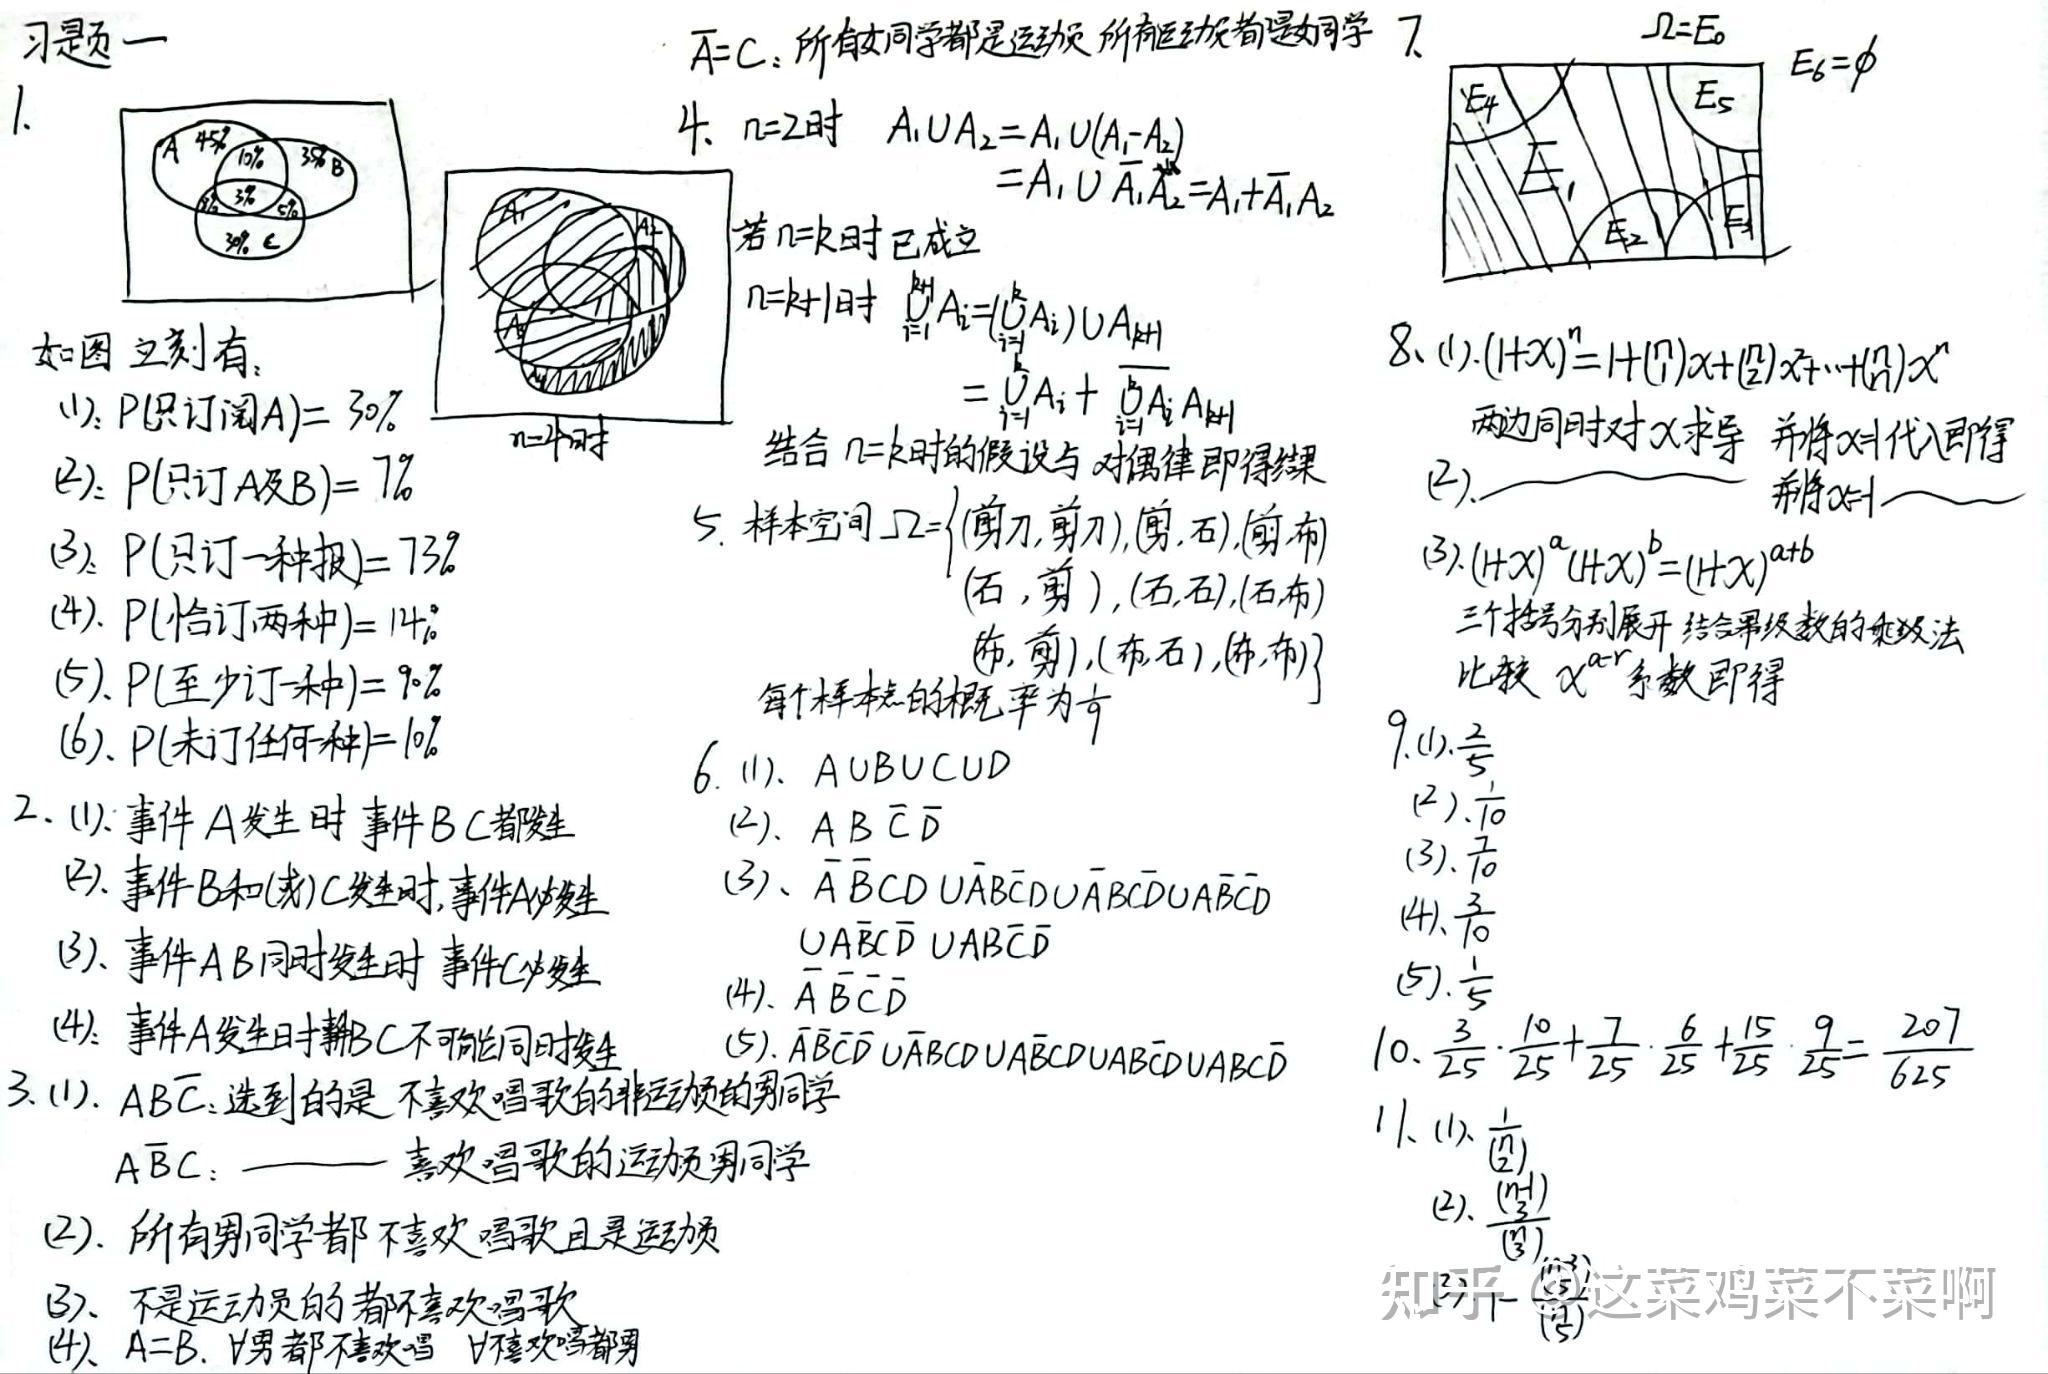 习题一
1.
A 45% 10% 35% B
8% 3% 5%
30% C
如图 立刻有:
(1): P(只订阅A)= 30%
(2): P(只订A及B)= 7%
(3): P(只订一种报)= 73%
(4). P(恰订两种)= 14%
(5). P(至少订一种)= 90%
(6). P(未订任何一种)= 10%
2. (1): 事件A发生时 事件BC都发生
(2). 事件B和(或)C发生时, 事件A必发生
(3). 事件AB同时发生时 事件C必发生
(4): 事件A发生时事件BC不可能同时发生
3. (1). ABC̅: 选到的是 不喜欢唱歌的非运动员的男同学
AB̅C: —— 喜欢唱歌的运动员男同学
(2). 所有男同学都不喜欢唱歌且是运动员
(3). 不是运动员的都不喜欢唱歌
(4). A=B. ∀男都不喜欢唱 ∀不喜欢唱都男
A̅=C: 所有女同学都是运动员 所有运动员都是女同学
A₁ A₂
A₃
A₄
n=4时
4. n=2时 A₁∪A₂=A₁∪(A₁-A₂)
=A₁∪A̅₁A₂=A₁+A̅₁A₂
若n=k时已成立
n=k+1时 ⋃_{i=1}^{k+1}A_i=(⋃_{i=1}^{k}A_i)∪A_{k+1}
= ⋃_{i=1}^{k}A_i + \overline{⋃_{i=1}^{k}A_i} A_{k+1}
结合n=k时的假设与对偶律即得结果
5. 样本空间Ω={(剪刀,剪刀),(剪,石),(剪,布)
(石,剪),(石,石),(石,布)
(布,剪),(布,石),(布,布)}
每个样本点的概率为1/9
6. (1). A∪B∪C∪D
(2). A B C̅ D̅
(3). A̅B̅CD∪A̅BC̅D∪A̅BCD̅∪AB̅C̅D
∪AB̅CD̅∪ABC̅D̅
(4). A̅B̅C̅D̅
(5). A̅B̅C̅D̅∪A̅BCD∪AB̅CD∪ABC̅D∪ABCD̅
7. Ω=E₀
E₆=ϕ
E₄ E₅
E₁
E₂ E₃
8. (1). (1+x)ⁿ=1+(n 1)x+(n 2)x²+…+(n n)xⁿ
两边同时对x求导 并将x=1代入即得
(2). —— 并将x=-1 ——
(3). (1+x)ᵃ(1+x)ᵇ=(1+x)ᵃ⁺ᵇ
三个括号分别展开 结合幂级数的乘法
比较 xᵃ⁻ʳ系数即得
9. (1). 2/5
(2). 1/10
(3). 7/10
(4). 3/10
(5). 1/5
10. 3/25·10/25+7/25·6/25+15/25·9/25=207/625
11. (1). 1/(n 2)
(2). (n-1 3)/(n 3)
(3). 1-
知乎 @这菜鸡菜不菜啊